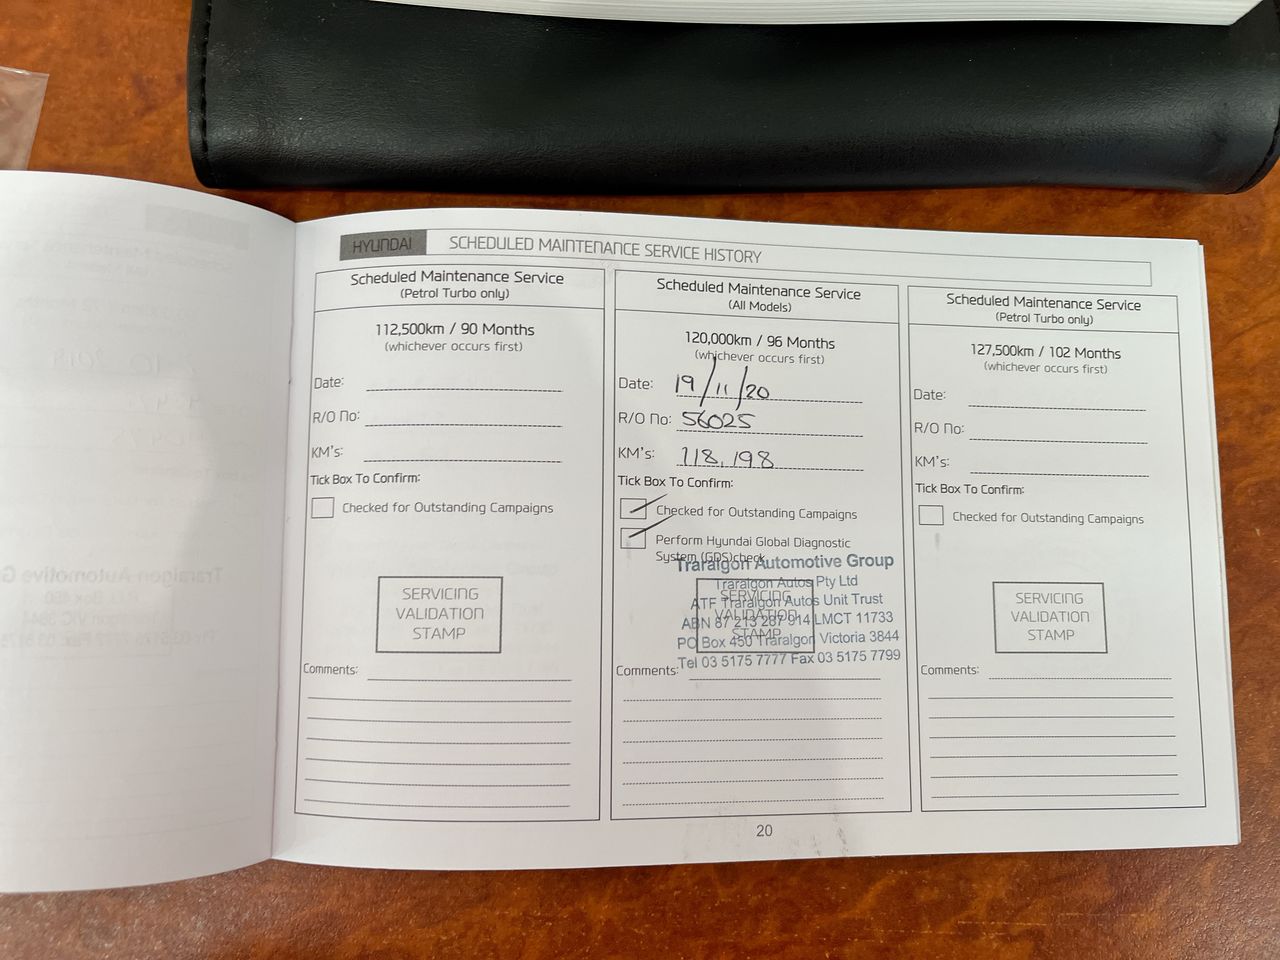 HYUNDAI SCHEDULED MAINTENANCE SERVICE HISTORY
Scheduled Maintenance Service
(Petrol Turbo only)
112,500km / 90 Months
(whichever occurs first)
Date:
R/O No:
KM's:
Tick Box To Confirm:
Checked for Outstanding Campaigns
SERVICING
VALIDATION
STAMP
Comments:
Scheduled Maintenance Service
(All Models)
120,000km / 96 Months
(whichever occurs first)
Date: 19/11/20
R/O No: 56025
KM's: 118,198
Tick Box To Confirm:
Checked for Outstanding Campaigns
Perform Hyundai Global Diagnostic
System (GDS)check
Traralgon Automotive Group
Traralgon Autos Pty Ltd
ATF Traralgon Autos Unit Trust
ABN 87 213 287 914 LMCT 11733
PO Box 450 Traralgon Victoria 3844
Tel 03 5175 7777 Fax 03 5175 7799
SERVICING
VALIDATION
STAMP
Comments:
Scheduled Maintenance Service
(Petrol Turbo only)
127,500km / 102 Months
(whichever occurs first)
Date:
R/O No:
KM's:
Tick Box To Confirm:
Checked for Outstanding Campaigns
SERVICING
VALIDATION
STAMP
Comments:
20